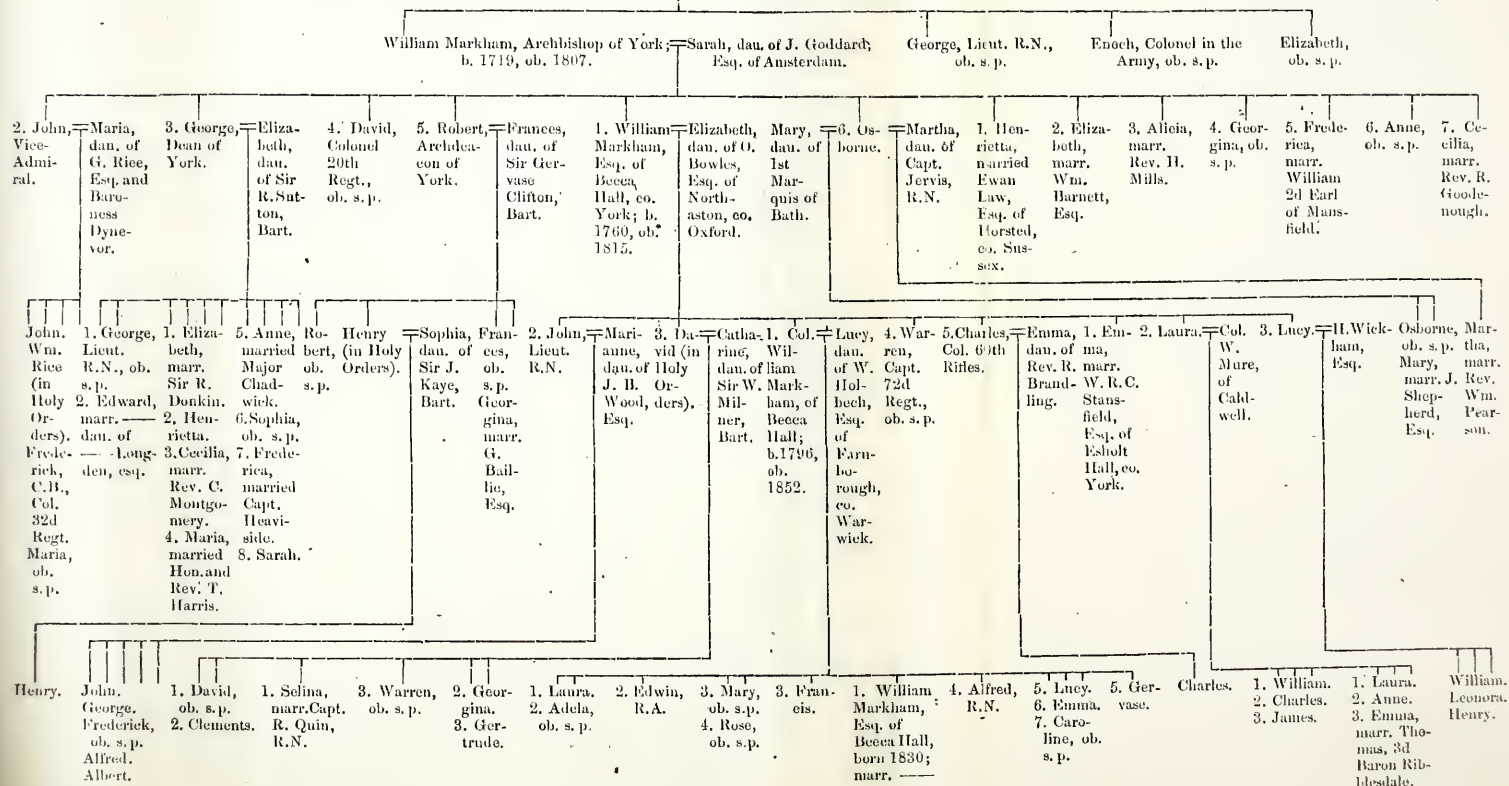 William Markham, Archbishop of York;
b. 1719, ob. 1807.
Sarah, dau. of J. Goddard,
Esq. of Amsterdam.
George, Lieut. R.N.,
ob. s. p.
Enoch, Colonel in the
Army, ob. s. p.
Elizabeth,
ob. s. p.
2. John,
Vice-
Admi-
ral.
Maria,
dau. of
G. Rice,
Esq. and
Baro-
ness
Dyne-
vor.
3. George,
Dean of
York.
Eliza-
beth,
dau.
of Sir
R. Sut-
ton,
Bart.
4. David,
Colonel
20th
Regt.,
ob. s. p.
5. Robert,
Archdea-
con of
York.
Frances,
dau. of
Sir Ger-
vase
Clifton,
Bart.
1. William
Markham,
Esq. of
Becca
Hall, co.
York; b.
1760, ob.
1815.
Elizabeth,
dau. of O.
Bowles,
Esq. of
North-
aston, co.
Oxford.
Mary,
dau. of
1st
Mar-
quis of
Bath.
6. Os-
borne.
Martha,
dau. of
Capt.
Jervis,
R.N.
1. Hen-
rietta,
married
Ewan
Law,
Esq. of
Horsted,
co. Sus-
sex.
2. Eliza-
beth,
marr.
Wm.
Barnett,
Esq.
3. Alicia,
marr.
Rev. H.
Mills.
4. Geor-
gina, ob.
s. p.
5. Frede-
rica,
marr.
William
2d Earl
of Mans-
field.
6. Anne,
ob. s. p.
7. Ce-
cilia,
marr.
Rev. R.
Goode-
nough.
John.
Wm.
Rice
(in
Holy
Or-
ders).
Frede-
rick,
C.B.,
Col.
32d
Regt.
Maria,
ob.
s. p.
1. George,
Lieut.
R.N., ob.
s. p.
2. Edward,
marr. ——
dau. of
—— Long-
den, esq.
1. Eliza-
beth,
marr.
Sir R.
Donkin.
2. Hen-
rietta.
3. Cecilia,
marr.
Rev. C.
Montgo-
mery.
4. Maria,
married
Hon. and
Rev. T.
Harris.
5. Anne,
married
Major
Chad-
wick.
6. Sophia,
ob. s. p.
7. Frede-
rica,
married
Capt.
Heavi-
side.
8. Sarah.
Ro-
bert,
ob.
s. p.
Henry
(in Holy
Orders).
Sophia,
dau. of
Sir J.
Kaye,
Bart.
Fran-
ces,
ob.
s. p.
Geor-
gina,
marr.
G.
Bail-
lie,
Esq.
2. John,
Lieut.
R.N.
Mari-
anne,
dau. of
J. B.
Wood,
Esq.
3. Da-
vid (in
Holy
Or-
ders).
Catha-
rine,
dau. of
Sir W.
Mil-
ner,
Bart.
1. Col.
Wil-
liam
Mark-
ham, of
Becca
Hall;
b. 1796,
ob.
1852.
Lucy,
dau.
of W.
Hol-
bech,
Esq.
of
Farn-
bo-
rough,
co.
War-
wick.
4. War-
ren,
Capt.
72d
Regt.,
ob. s. p.
5. Charles,
Col. 60th
Rifles.
Emma,
dau. of
Rev. R.
Brand-
ling.
1. Em-
ma,
marr.
W. R. C.
Stans-
field,
Esq. of
Esholt
Hall, co.
York.
2. Laura.
Col.
W.
Mure,
of
Cald-
well.
3. Lucy.
H. Wick-
ham,
Esq.
Osborne,
ob. s. p.
Mary,
marr. J.
Shep-
herd,
Esq.
Mar-
tha,
marr.
Rev.
Wm.
Pear-
son.
Henry.
John.
George.
Frederick,
ob. s. p.
Alfred.
Albert.
1. David,
ob. s. p.
2. Clements.
1. Selina,
marr. Capt.
R. Quin,
R.N.
3. Warren,
ob. s. p.
2. Geor-
gina.
3. Ger-
trude.
1. Laura.
2. Adela,
ob. s. p.
2. Edwin,
R.A.
3. Mary,
ob. s. p.
4. Rose,
ob. s. p.
3. Fran-
cis.
1. William
Markham,
Esq. of
Becca Hall,
born 1830;
marr. ——
4. Alfred,
R.N.
5. Lucy.
6. Emma.
7. Caro-
line, ob.
s. p.
5. Ger-
vase.
Charles.
1. William.
2. Charles.
3. James.
1. Laura.
2. Anne.
3. Emma,
marr. Tho-
mas, 3d
Baron Rib-
blesdale.
William.
Leonora.
Henry.